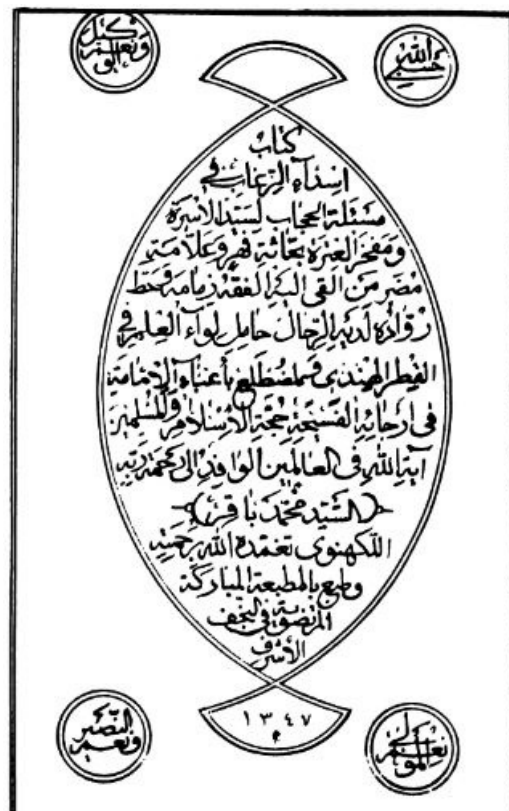 حسبي الله
ونعم الوكيل
كتاب
اسدآء الرغاب في
مسئلة الحجاب لسيد الأسرة
ومفخر العترة بحاثة فهر وعلامة
مضر من القى اليه الفقه زمامه وحط
رواده لديه الرحال حامل لواء العلم في
القطر الهندي ومضطلع بأعباء الإمامة
في ارجائه الفسيحة حجة الإسلام والمسلمين
آية الله في العالمين الوافد الى رحمة ربه
(السيد محمد باقر)
اللكهنوي تغمده الله برحمته
وطبع بالمطبعة المباركة
المرتضوية في النجف
الأشرف
١٣٤٧
نعم المولى
ونعم النصير